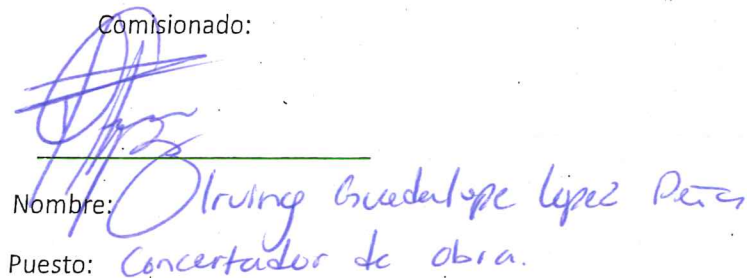 Comisionado:
Nombre: Irving Guadalupe López Peña
Puesto: Concertador de obra.